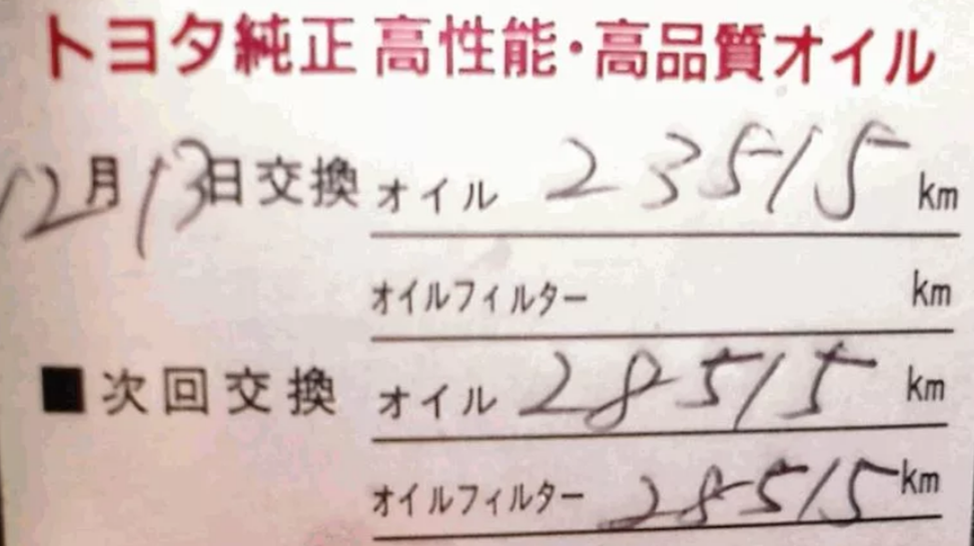 トヨタ純正 高性能・高品質オイル
12月13日交換 オイル 23515 km
オイルフィルター km
■次回交換 オイル 28515 km
オイルフィルター 28515 km